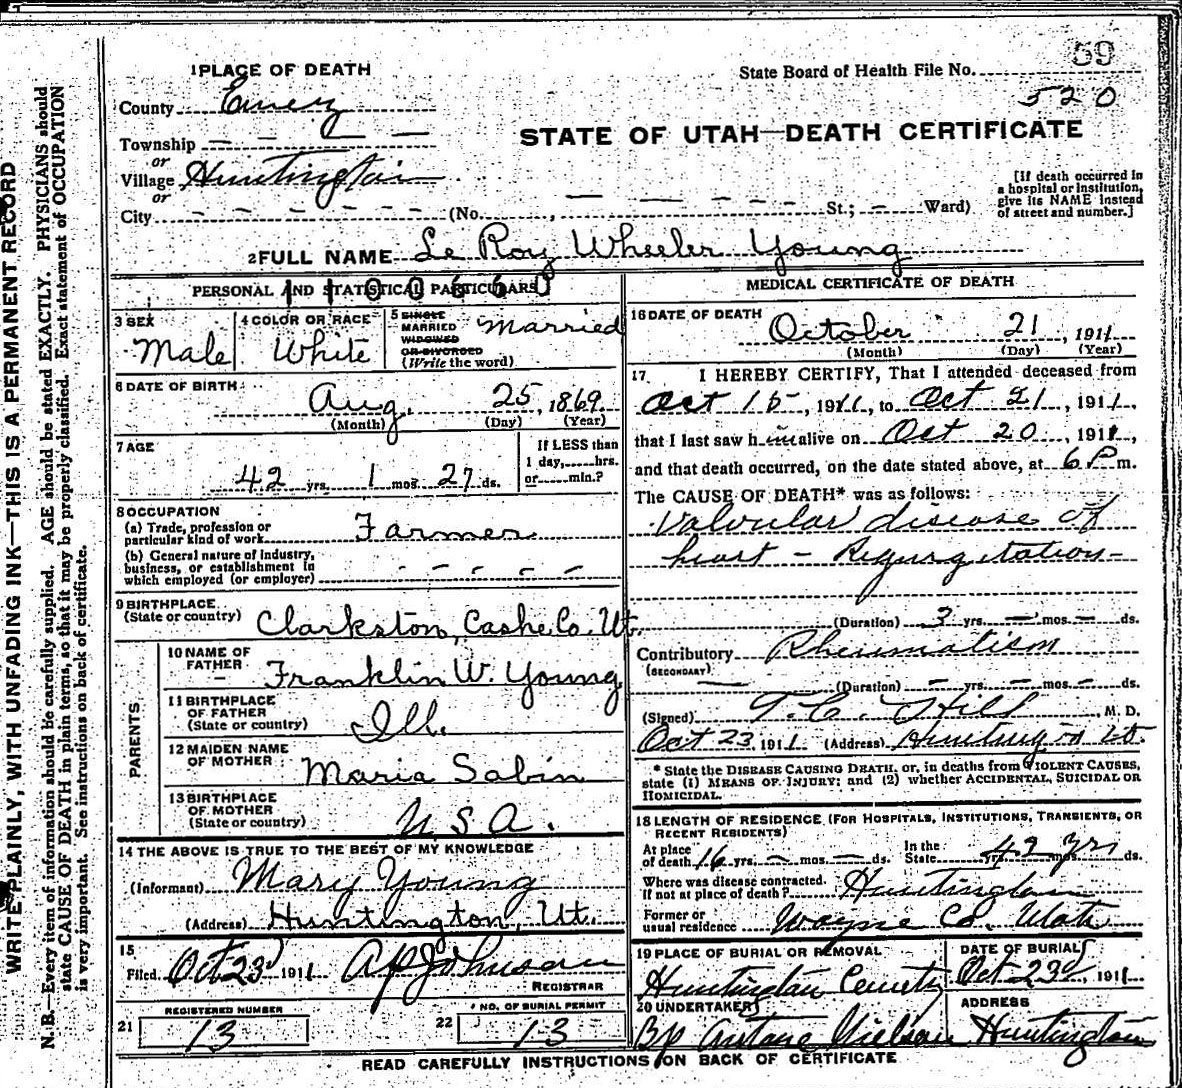 59
1 PLACE OF DEATH
State Board of Health File No.
520
County Emery
STATE OF UTAH—DEATH CERTIFICATE
Township — — — —
or
Village Huntington
or
City - - - - - - (No. , — — - - - St.; — Ward)
[If death occurred in
a hospital or institution,
give its NAME instead
of street and number.]
2 FULL NAME Le Roy Wheeler Young
PERSONAL AND STATISTICAL PARTICULARS
3 SEX
Male
4 COLOR OR RACE
White
5 SINGLE
MARRIED
WIDOWED
OR DIVORCED
(Write the word)
Married
6 DATE OF BIRTH
Aug. 25, 1869
(Month) (Day) (Year)
7 AGE
42 yrs. 1 mos. 27 ds.
If LESS than
1 day, hrs.
or min.?
8 OCCUPATION
(a) Trade, profession or
particular kind of work Farmer
(b) General nature of industry,
business, or establishment in
which employed (or employer) - - - -
9 BIRTHPLACE
(State or country) Clarkston, Cashe Co. Ut.
PARENTS
10 NAME OF
FATHER Franklin W. Young
11 BIRTHPLACE
OF FATHER
(State or country) Ill.
12 MAIDEN NAME
OF MOTHER Maria Sabin
13 BIRTHPLACE
OF MOTHER
(State or country) U S A.
14 THE ABOVE IS TRUE TO THE BEST OF MY KNOWLEDGE
(Informant) Mary Young
(Address) Huntington, Ut.
15
Filed Oct 23d 1911 A P Johnson
REGISTRAR
REGISTERED NUMBER
21 13
NO. OF BURIAL PERMIT
22 13
MEDICAL CERTIFICATE OF DEATH
16 DATE OF DEATH
October 21, 1911
(Month) (Day) (Year)
17 I HEREBY CERTIFY, That I attended deceased from
Oct 15, 1911, to Oct 21, 1911,
that I last saw him alive on Oct 20, 1911,
and that death occurred, on the date stated above, at 6 P m.
The CAUSE OF DEATH* was as follows:
Valvular disease of
heart — Regurgitation —
(Duration) 3 yrs. — mos. — ds.
Contributory Rheumatism
(SECONDARY)
(Duration) — yrs. — mos. — ds.
(Signed) T. C. Hill, M. D.
Oct 23 1911 (Address) Huntington Ut.
* State the DISEASE CAUSING DEATH, or, in deaths from VIOLENT CAUSES,
state (1) MEANS OF INJURY; and (2) whether ACCIDENTAL, SUICIDAL OR
HOMICIDAL.
18 LENGTH OF RESIDENCE (FOR HOSPITALS, INSTITUTIONS, TRANSIENTS, OR
RECENT RESIDENTS)
At place
of death 16 yrs. — mos. — ds.
In the
State 42 yrs mos. ds.
Where was disease contracted,
if not at place of death? Huntington
Former or
usual residence Wayne Co. Utah
19 PLACE OF BURIAL OR REMOVAL
Huntington
DATE OF BURIAL
Oct 23d 1911
20 UNDERTAKER
Bp Nielsen
ADDRESS
Huntington
READ CAREFULLY INSTRUCTIONS ON BACK OF CERTIFICATE
WRITE PLAINLY, WITH UNFADING INK—THIS IS A PERMANENT RECORD
N. B.—Every item of information should be carefully supplied. AGE should be stated EXACTLY. PHYSICIANS should
state CAUSE OF DEATH in plain terms, so that it may be properly classified. Exact statement of OCCUPATION
is very important. See instructions on back of certificate.